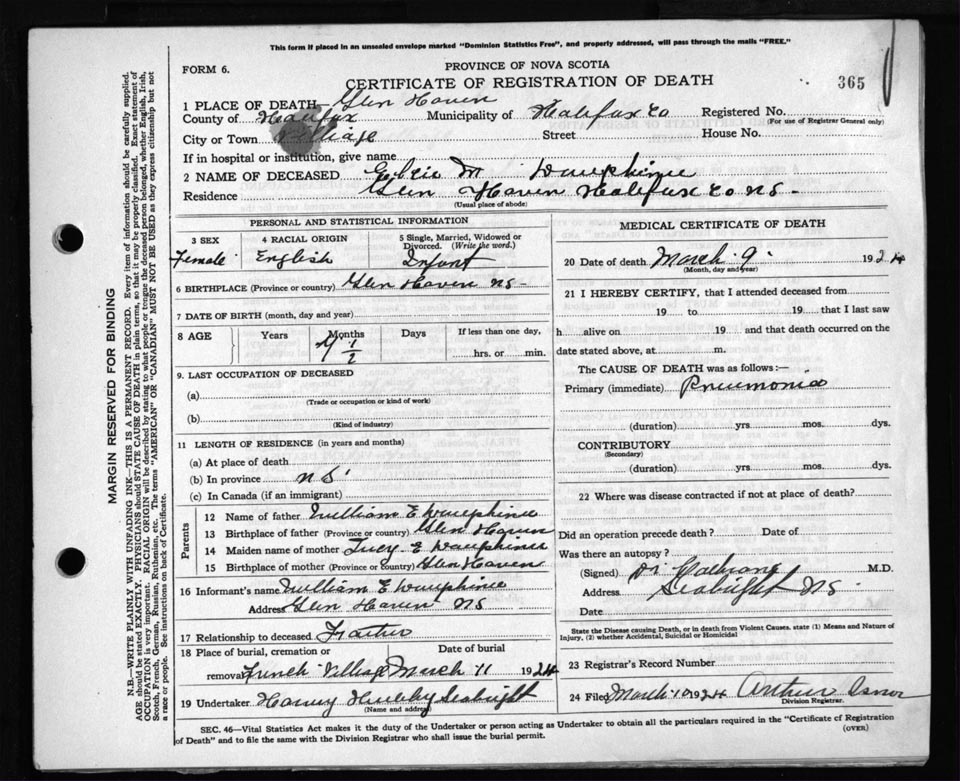 This form if placed in an unsealed envelope marked "Dominion Statistics Free", and properly addressed, will pass through the mails "FREE."
FORM 6.
PROVINCE OF NOVA SCOTIA
CERTIFICATE OF REGISTRATION OF DEATH
365
1 PLACE OF DEATH— Glen Haven
County of Halifax Municipality of Halifax Co Registered No.
(For use of Registrar General only)
City or Town Village Street House No.
If in hospital or institution, give name
2 NAME OF DECEASED M Dauphinee
Residence Glen Haven Halifax Co NS-
(Usual place of abode)
PERSONAL AND STATISTICAL INFORMATION
3 SEX 4 RACIAL ORIGIN 5 Single, Married, Widowed or Divorced. (Write the word.)
Female English Infant
6 BIRTHPLACE (Province or country) Glen Haven NS-
7 DATE OF BIRTH (month, day and year)
8 AGE Years Months Days If less than one day,
1/2 hrs. or min.
9. LAST OCCUPATION OF DECEASED
(a)
(Trade or occupation or kind of work)
(b)
(Kind of industry)
11 LENGTH OF RESIDENCE (in years and months)
(a) At place of death
(b) In province NS
(c) In Canada (if an immigrant)
Parents
12 Name of father William E Dauphinee
13 Birthplace of father (Province or country) Glen Haven
14 Maiden name of mother Lucy E Dauphinee
15 Birthplace of mother (Province or country) Glen Haven
16 Informant's name William E Dauphinee
Address Glen Haven NS
17 Relationship to deceased Father
18 Place of burial, cremation or removal Date of burial
French Village March 11 1924
19 Undertaker Harvey Hubley Seabright
(Name and address)
MEDICAL CERTIFICATE OF DEATH
20 Date of death March 9 1924
(Month, day and year)
21 I HEREBY CERTIFY, that I attended deceased from
19 to 19 that I last saw
h alive on 19 and that death occurred on the
date stated above, at m.
The CAUSE OF DEATH was as follows:—
Primary (immediate) Pneumonia
(duration) yrs. mos. dys.
CONTRIBUTORY
(Secondary)
(duration) yrs. mos. dys.
22 Where was disease contracted if not at place of death?
Did an operation precede death? Date of
Was there an autopsy?
(Signed) Dr M.D.
Address Seabright NS
Date
State the Disease causing Death, or in death from Violent Causes, state (1) Means and Nature of
Injury, (2) whether Accidental, Suicidal or Homicidal
23 Registrar's Record Number
24 Filed March 10 1924 Arthur
Division Registrar.
SEC. 46—Vital Statistics Act makes it the duty of the Undertaker or person acting as Undertaker to obtain all the particulars required in the "Certificate of Registration
of Death" and to file the same with the Division Registrar who shall issue the burial permit. (OVER)
MARGIN RESERVED FOR BINDING
N.B.—WRITE PLAINLY WITH UNFADING INK—THIS IS A PERMANENT RECORD. Every item of information should be carefully supplied.
AGE should be stated EXACTLY. PHYSICIANS should STATE CAUSE OF DEATH in plain terms, so that it may be properly classified. Exact statement of
OCCUPATION is very important. RACIAL ORIGIN will be described by stating to what people or tongue the deceased person belonged, whether English, Irish,
Scotch, French, German, Russian, Ruthenian, etc. The terms "AMERICAN" OR "CANADIAN" MUST NOT BE USED as they express citizenship but not
a race or people. See instructions on back of Certificate.